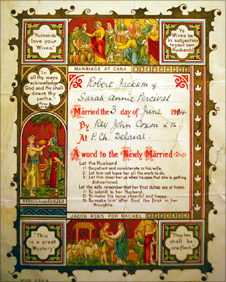 "Husbands
love your
Wives."
"Wives be
in subjection
to your own
Husbands"
MARRIAGE AT CANA
In
all thy ways
acknowledge
God and He shall
direct thy
paths.
Robert Jackson &
Sarah Annie Percival
Married the 3 day of June
By Rev John Coxon
At P. Ch. Delaval.
A word to the Newly Married
Let the Husband
1) Be patient and considerate to his wife.
2) Let him not leave her all the work to do.
3) Let him cheer her up when he sees that she is getting
disheartened.
Let the wife remember that her first duties are at home.
1) To submit to her Husband.
2) To make his home cheerful and happy.
3) To make him after God the first in her
thoughts.
"This
is a great
Mystery"
JACOB ASKS FOR RACHEL
"They two
shall be
one flesh."